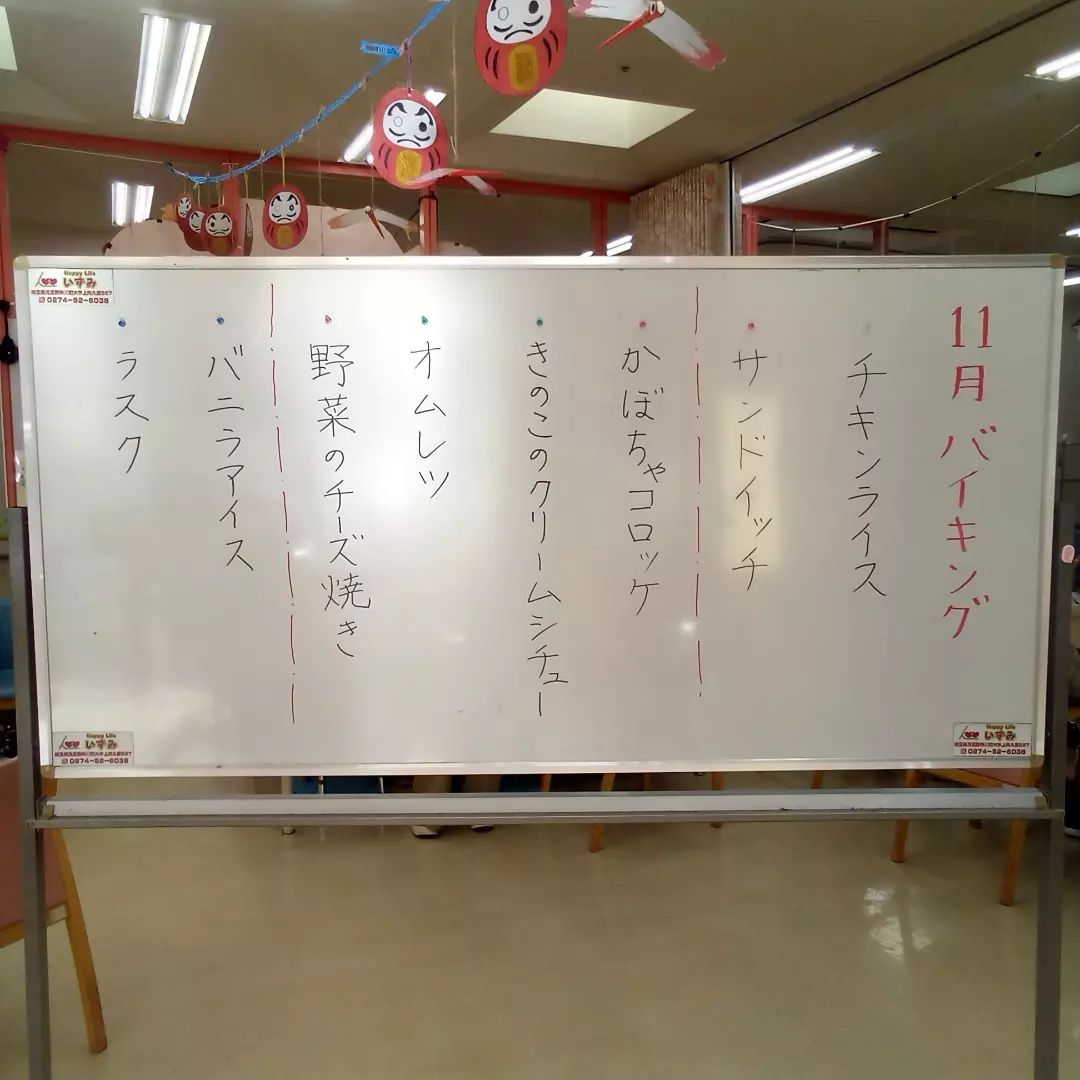 11月 バイキング
チキンライス
サンドイッチ
かぼちゃコロッケ
きのこのクリームシチュー
オムレツ
野菜のチーズ焼き
バニラアイス
ラスク
Happy Life
いずみ
0274-52-6038
Happy Life
いずみ
0274-52-6038
Happy Life
いずみ
0274-52-6038